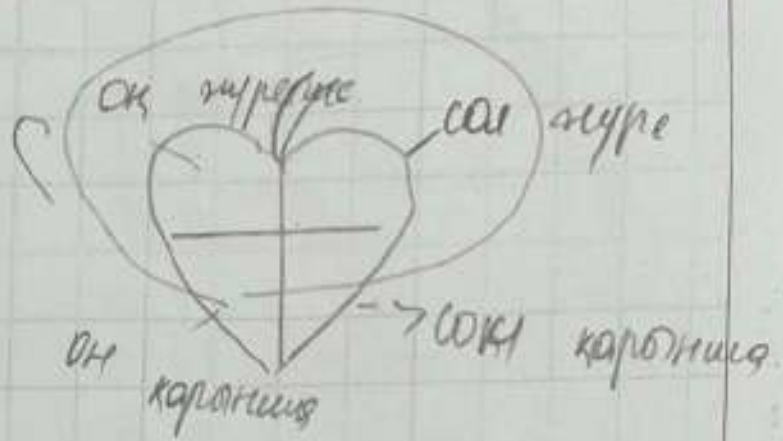 оң жүрекше
сол жүре
он
карынша
сол қарынша